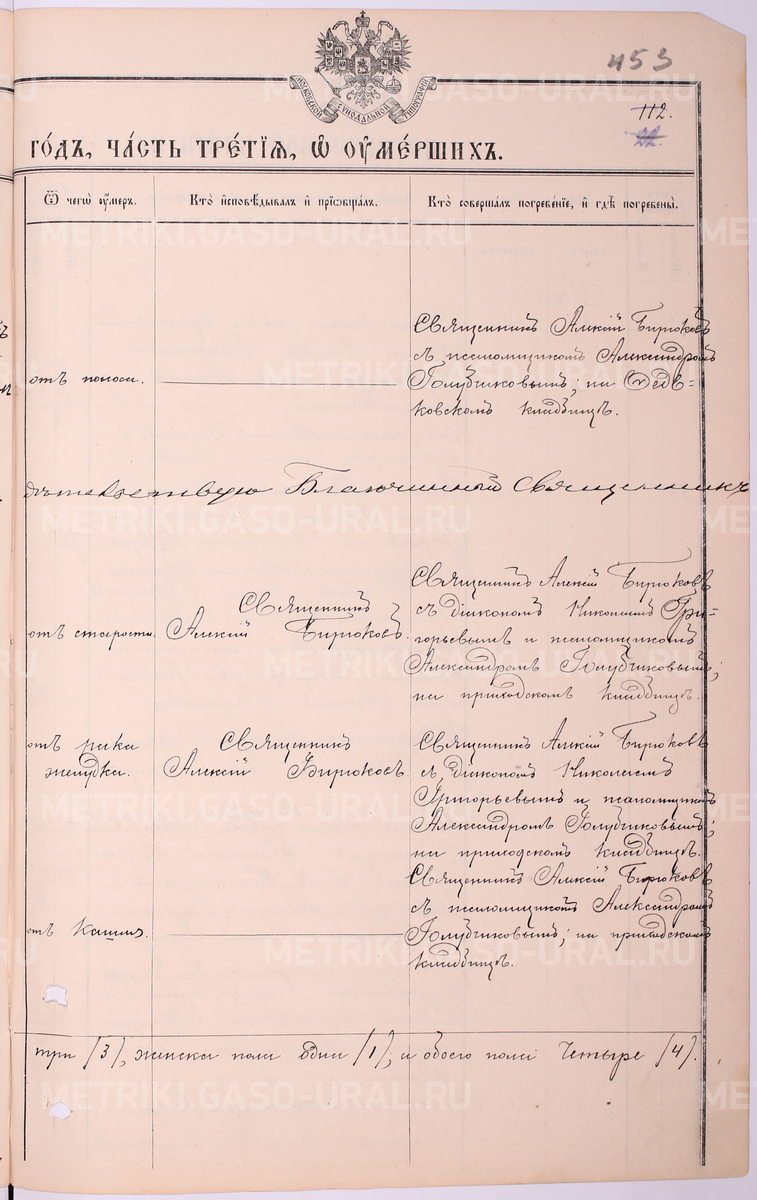 453
МОСКОВСКОЙ СѴНОДАЛЬНОЙ ТИПОГРАФІИ
112.
22.
ГОДЪ, ЧАСТЬ ТРЕТІЯ, Ѡ ОУМЕРШИХЪ.
Ѿ чегѡ оумеръ.
Кто исповѣдывалъ и пріобщалъ.
Кто совершалъ погребеніе, и гдѣ погребены.
отъ поноса.
Священникъ Алексій Бирюковъ
съ псаломщикомъ Александромъ
Голубчиковымъ; на
ковскомъ кладбищѣ.
Благочинный Священникъ
отъ старости.
Священникъ
Алексій Бирюковъ.
Священникъ Алексій Бирюковъ
съ діакономъ Николаемъ Гри-
горьевымъ и псаломщикомъ
Александромъ Голубчиковымъ;
на приходскомъ кладбищѣ.
отъ рака
желудка.
Священникъ
Алексій Бирюковъ.
Священникъ Алексій Бирюковъ
съ діакономъ Николаемъ
Григорьевымъ и псаломщикомъ
Александромъ Голубчиковымъ;
на приходскомъ кладбищѣ.
отъ кашля.
Священникъ Алексій Бирюковъ
съ псаломщикомъ Александромъ
Голубчиковымъ; на приходскомъ
кладбищѣ.
три /3/, женска пола одна /1/, а обоего пола четыре /4/.
METRIKI.GASO-URAL.RU